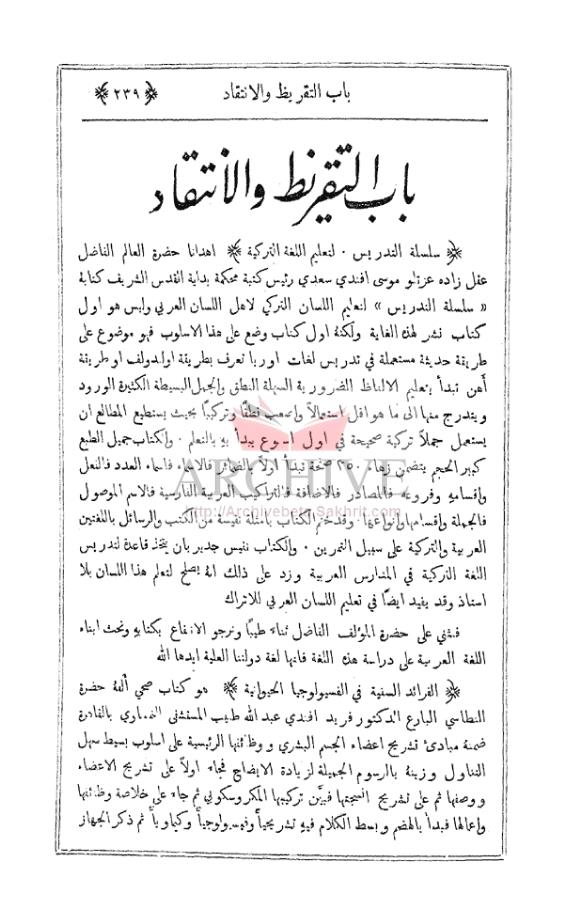 باب التقريظ والانتقاد ﴿٢٣٩﴾
باب التقريظ والانتقاد
﴿ سلسلة التدريس . لتعليم اللغة التركية ﴾ اهدانا حضرة العالم الفاضل
عقل زاده عزتلو موسى افندي سعدي رئيس كتبة محكمة بداية القدس الشريف كتابهُ
« سلسلة التدريس » لتعليم اللسان التركي لاهل اللسان العربي وليس هو اول
كتاب نشر لهذه الغاية ولكنهُ اول كتاب وضع على هذا الاسلوب فهو موضوع على
طريقة حديثة مستعملة في تدريس لغات اوربا تعرف بطريقة اولندولف او طريقة
أهن تبدأ بتعليم الالفاظ الضرورية السهلة النطق والجمل البسيطة الكثيرة الورود
ويتدرج منها الى ما هو اقل استعمالاً واصعب نطقًا وتركيبًا بحيث يستطيع المطالع ان
يستعمل جملاً تركية صحيحة في اول اسبوع يبدأ بهِ بالتعلم . والكتاب جميل الطبع
كبير الحجم يتضمن زهاء ٣٥٠ صفحة تبدأ اولاً بالضمائر فالاسماء فاسماء العدد فالفعل
واقسامهِ وفروعهِ فالمصادر فالاضافة فالتراكيب العربية الفارسية فالاسم الموصول
فالجملة واقسامها وانواعها . وقد ختم الكتاب بامثلة نفيسة من الكتب والرسائل باللغتين
العربية والتركية على سبيل التمرين . والكتاب نفيس جدير بان يتخذ قاعدة لتدريس
اللغة التركية في المدارس العربية وزد على ذلك انهُ يصلح لتعلم هذا اللسان بلا
استاذ وقد يفيد ايضًا في تعليم اللسان العربي للاتراك
فنثني على حضرة المؤلف الفاضل ثناءً طيبًا ونرجو الانتفاع بكتابهِ ونحث ابناء
اللغة العربية على دراسة هذه اللغة فانها لغة دولتنا العلية ايدها الله
﴿ الفرائد السنية في الفسيولوجيا الحيوانية ﴾ هو كتاب صحي ألفهُ حضرة
النطاسي البارع الدكتور فريد افندي عبد الله طبيب المستشفى النمساوي بالقاهرة
ضمنهُ مبادئ تشريح اعضاء الجسم البشري ووظائفها الرئيسية على اسلوب بسيط سهل
التناول وزينهُ بالرسوم الجميلة لزيادة الايضاح فجاء اولاً على تشريح الاعضاء
ووصفها ثم على تشريح انسجتها فبيَّن تركيبها المكروسكوبي ثم جاء على خلاصة وظائفها
واعمالها فبدأ بالهضم وبسط الكلام فيهِ تشريحياً وفسيولوجياً وكياوياً ثم ذكر الجهاز
ARCHIVE
http://Archivebeta.Sakhrit.com